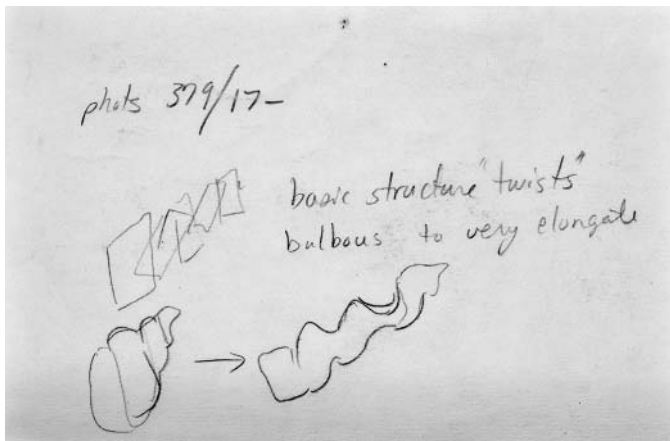 photo 379/17-
basic structure "twists"
bulbous to very elongate